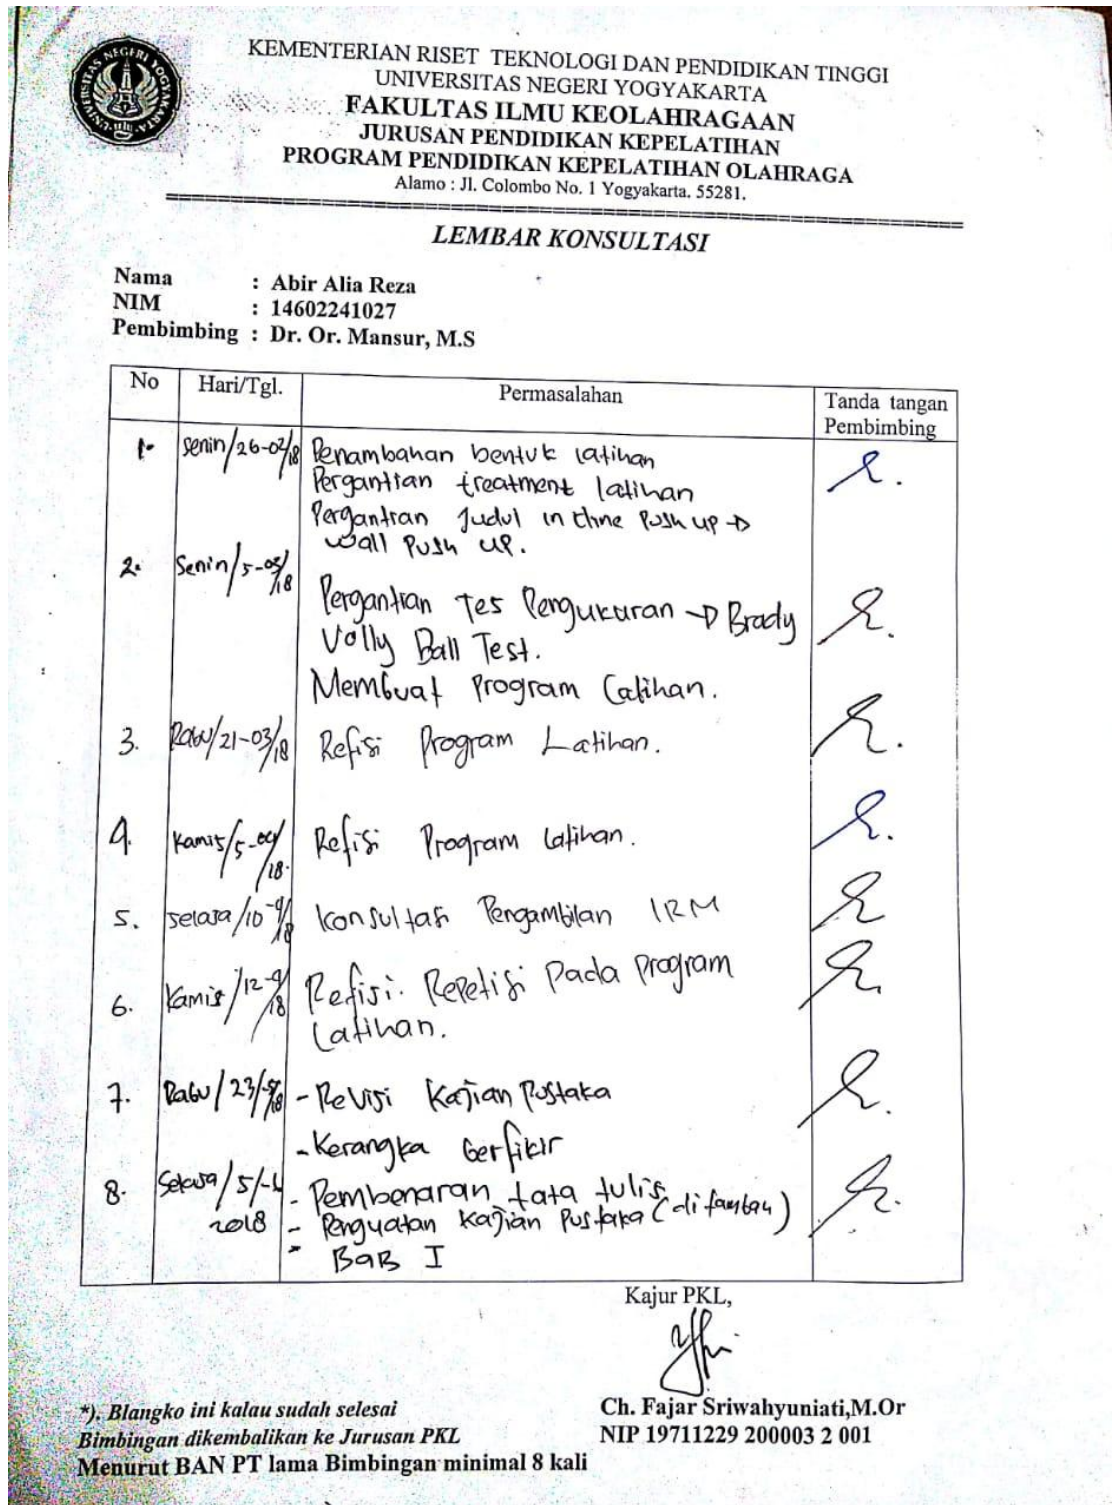 UNIVERSITAS NEGERI YOGYAKARTA
KEMENTERIAN RISET TEKNOLOGI DAN PENDIDIKAN TINGGI
UNIVERSITAS NEGERI YOGYAKARTA
FAKULTAS ILMU KEOLAHRAGAAN
JURUSAN PENDIDIKAN KEPELATIHAN
PROGRAM PENDIDIKAN KEPELATIHAN OLAHRAGA
Alamo : Jl. Colombo No. 1 Yogyakarta. 55281.
LEMBAR KONSULTASI
Nama : Abir Alia Reza
NIM : 14602241027
Pembimbing : Dr. Or. Mansur, M.S
No Hari/Tgl. Permasalahan Tanda tangan
Pembimbing
1. Senin/26-02/18 Penambahan bentuk latihan
Pergantian treatment latihan
Pergantian Judul Push up →
Wall Push up.
2. Senin/5-03/18
Pergantian Tes Pengukuran → Brady
Volly Ball Test.
Membuat Program Latihan.
3. Rabu/21-03/18 Refisi Program Latihan.
4. Kamis/5-04/18. Refisi Program latihan.
5. Selasa/10-4/18 Konsultasi Pengambilan 1RM
6. Kamis/12-4/18 Refisi. Repetisi Pada Program
Latihan.
7. Rabu/23/-5/18 - Revisi Kajian Pustaka
- Kerangka berfikir
8. Selasa/5/-6 - Pembenaran tata tulis
2018 - Penguatan Kajian Pustaka (ditambah)
- BAB I
Kajur PKL,
Ch. Fajar Sriwahyuniati,M.Or
NIP 19711229 200003 2 001
*). Blangko ini kalau sudah selesai
Bimbingan dikembalikan ke Jurusan PKL
Menurut BAN PT lama Bimbingan minimal 8 kali